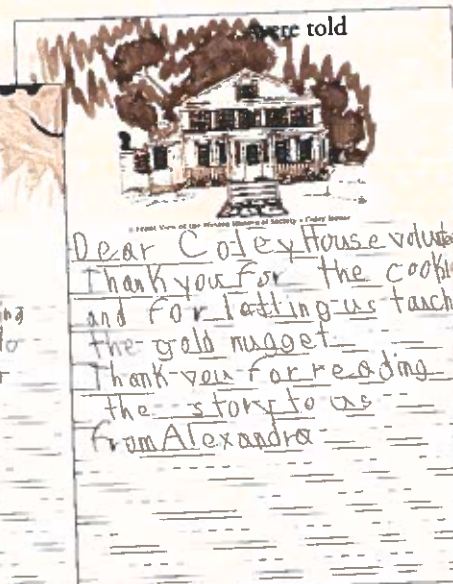 were told
Front View of the Historical Society - Coley House
Dear Coley House volunte
Thank you for the cookie
and for letting us tauch
the gold nugget
Thank you for reading
the story to us
from Alexandra